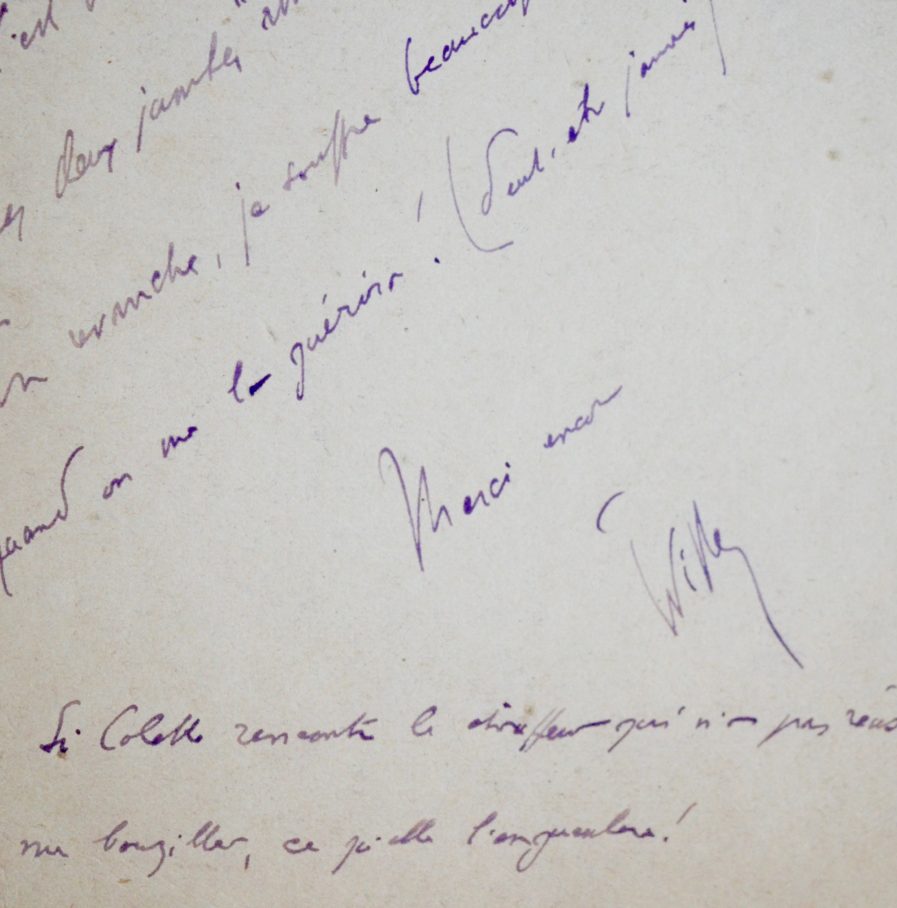 c'est
deux jambes
revanche, je souffre beaucoup
quand on me la guérira ! (Peut-être jamais)
Merci encor
Willy
Si Colette rencontre le chauffeur qui n'a pas réus
me bousiller, ce qu'elle l'engueulera !